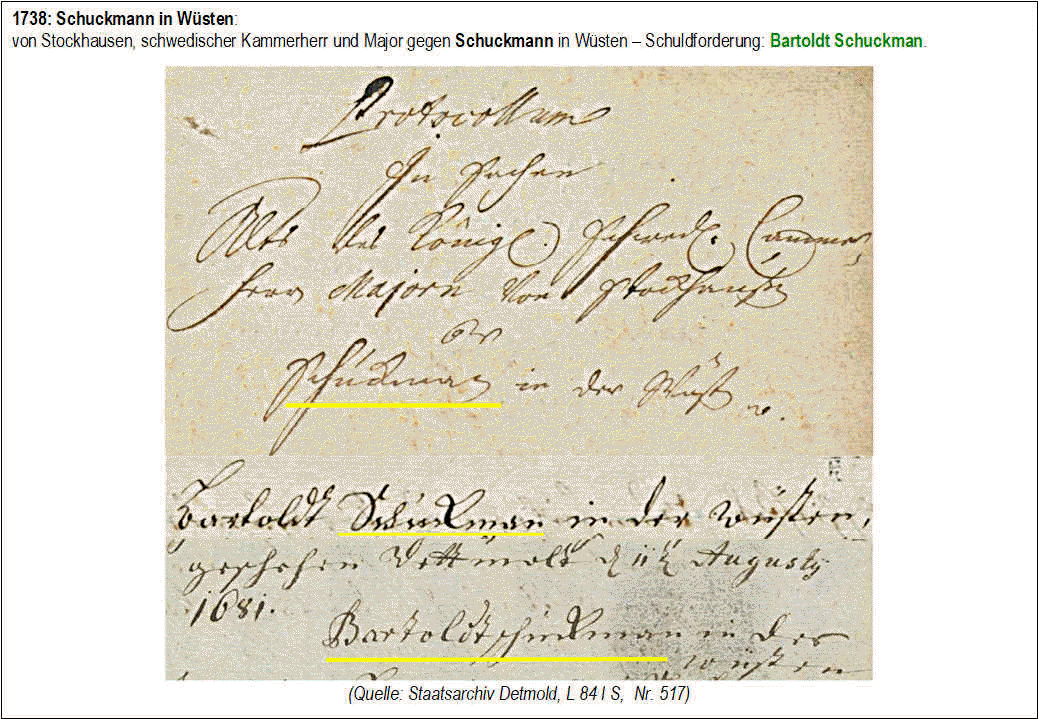 1738: Schuckmann in Wüsten:
von Stockhausen, schwedischer Kammerherr und Major gegen Schuckmann in Wüsten – Schuldforderung: Bartoldt Schuckman.
Protocollum
In Sachen
des Königl. Schwed. Cammer
herr Majorn von Stockhausen
Schuckman in der Wüst
Bartoldt Schuckman in der wüsten,
geschehen Dettmoldt d 11t Augusty
1681.
Bartoldt schuckman in der
wüsten
(Quelle: Staatsarchiv Detmold, L 84 I S, Nr. 517)